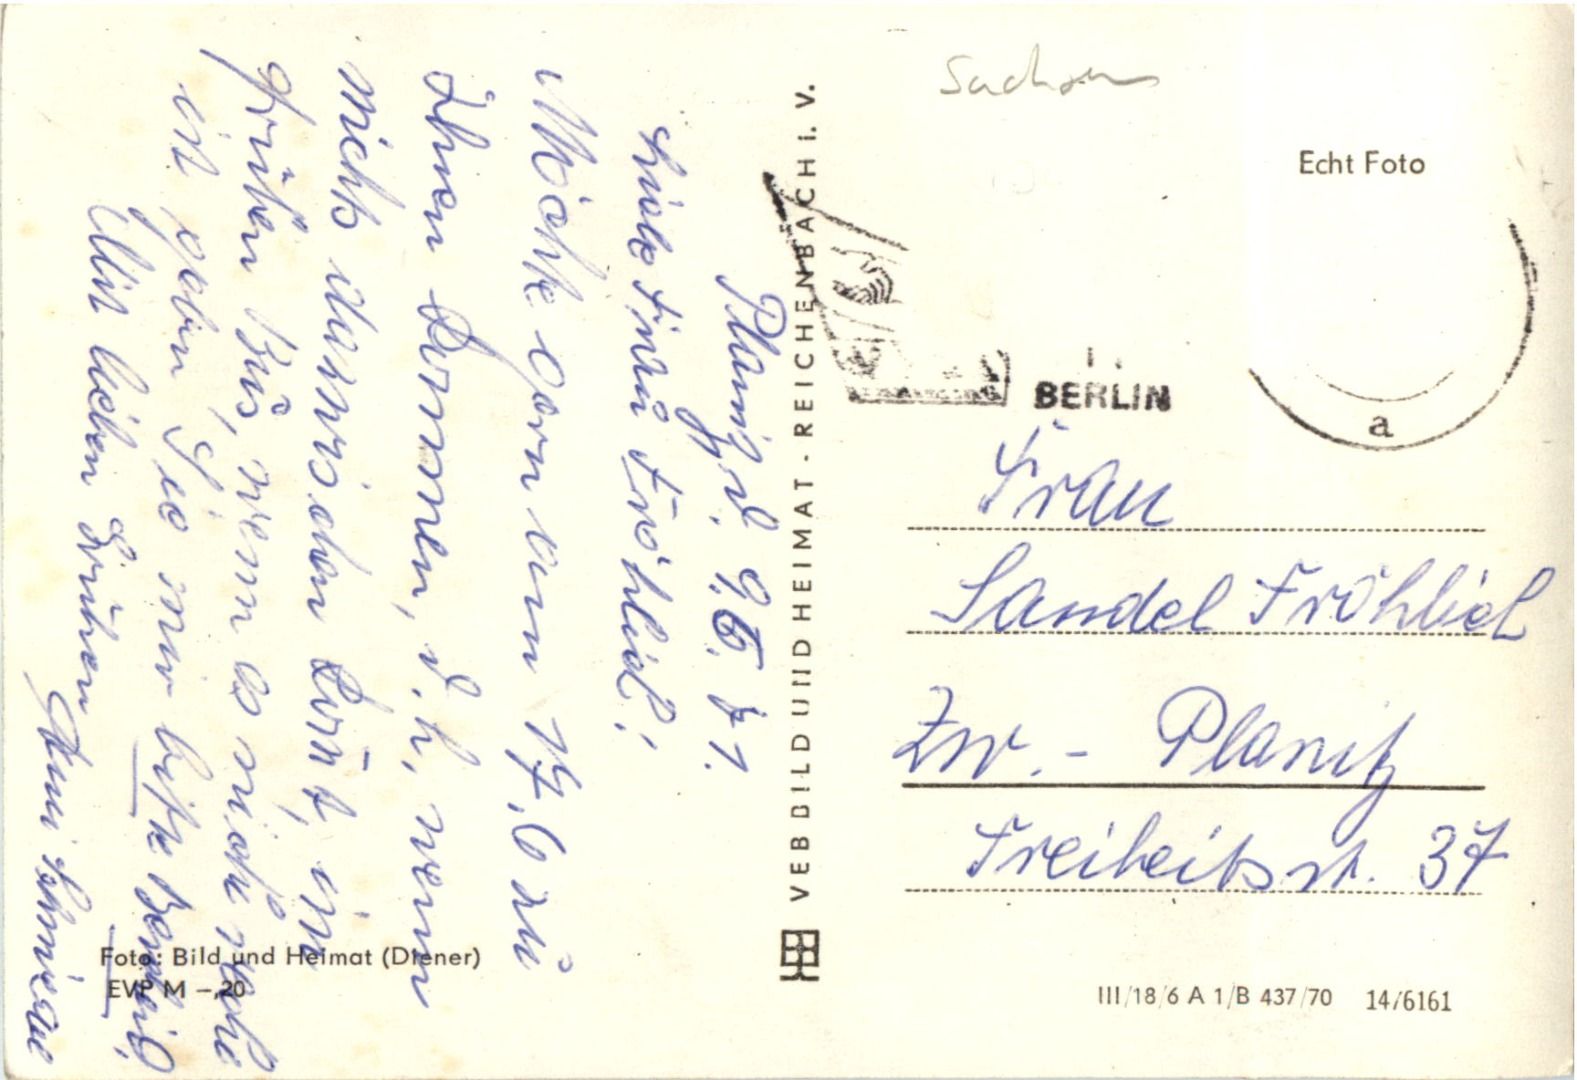 Sachsen
Echt Foto
BERLIN
a
Planitz, d. 9.6.71.
Liebe Frau Fröhlich!
Möchte gern am 17.6 zu
Ihnen kommen, d.h. wenn
nichts dazwischen kommt, im
grüben Bus, wenn es nicht recht
ist geben Sie mir bitte Bescheid.
Mit lieben Grüßen
Frau
Sandel Fröhlich
Zw.- Planitz
Freiheitsstr. 37
VEB BILD UND HEIMAT - REICHENBACH i. V.
Foto: Bild und Heimat (Diener)
EVP M –,20
III/18/6 A 1/B 437/70 14/6161